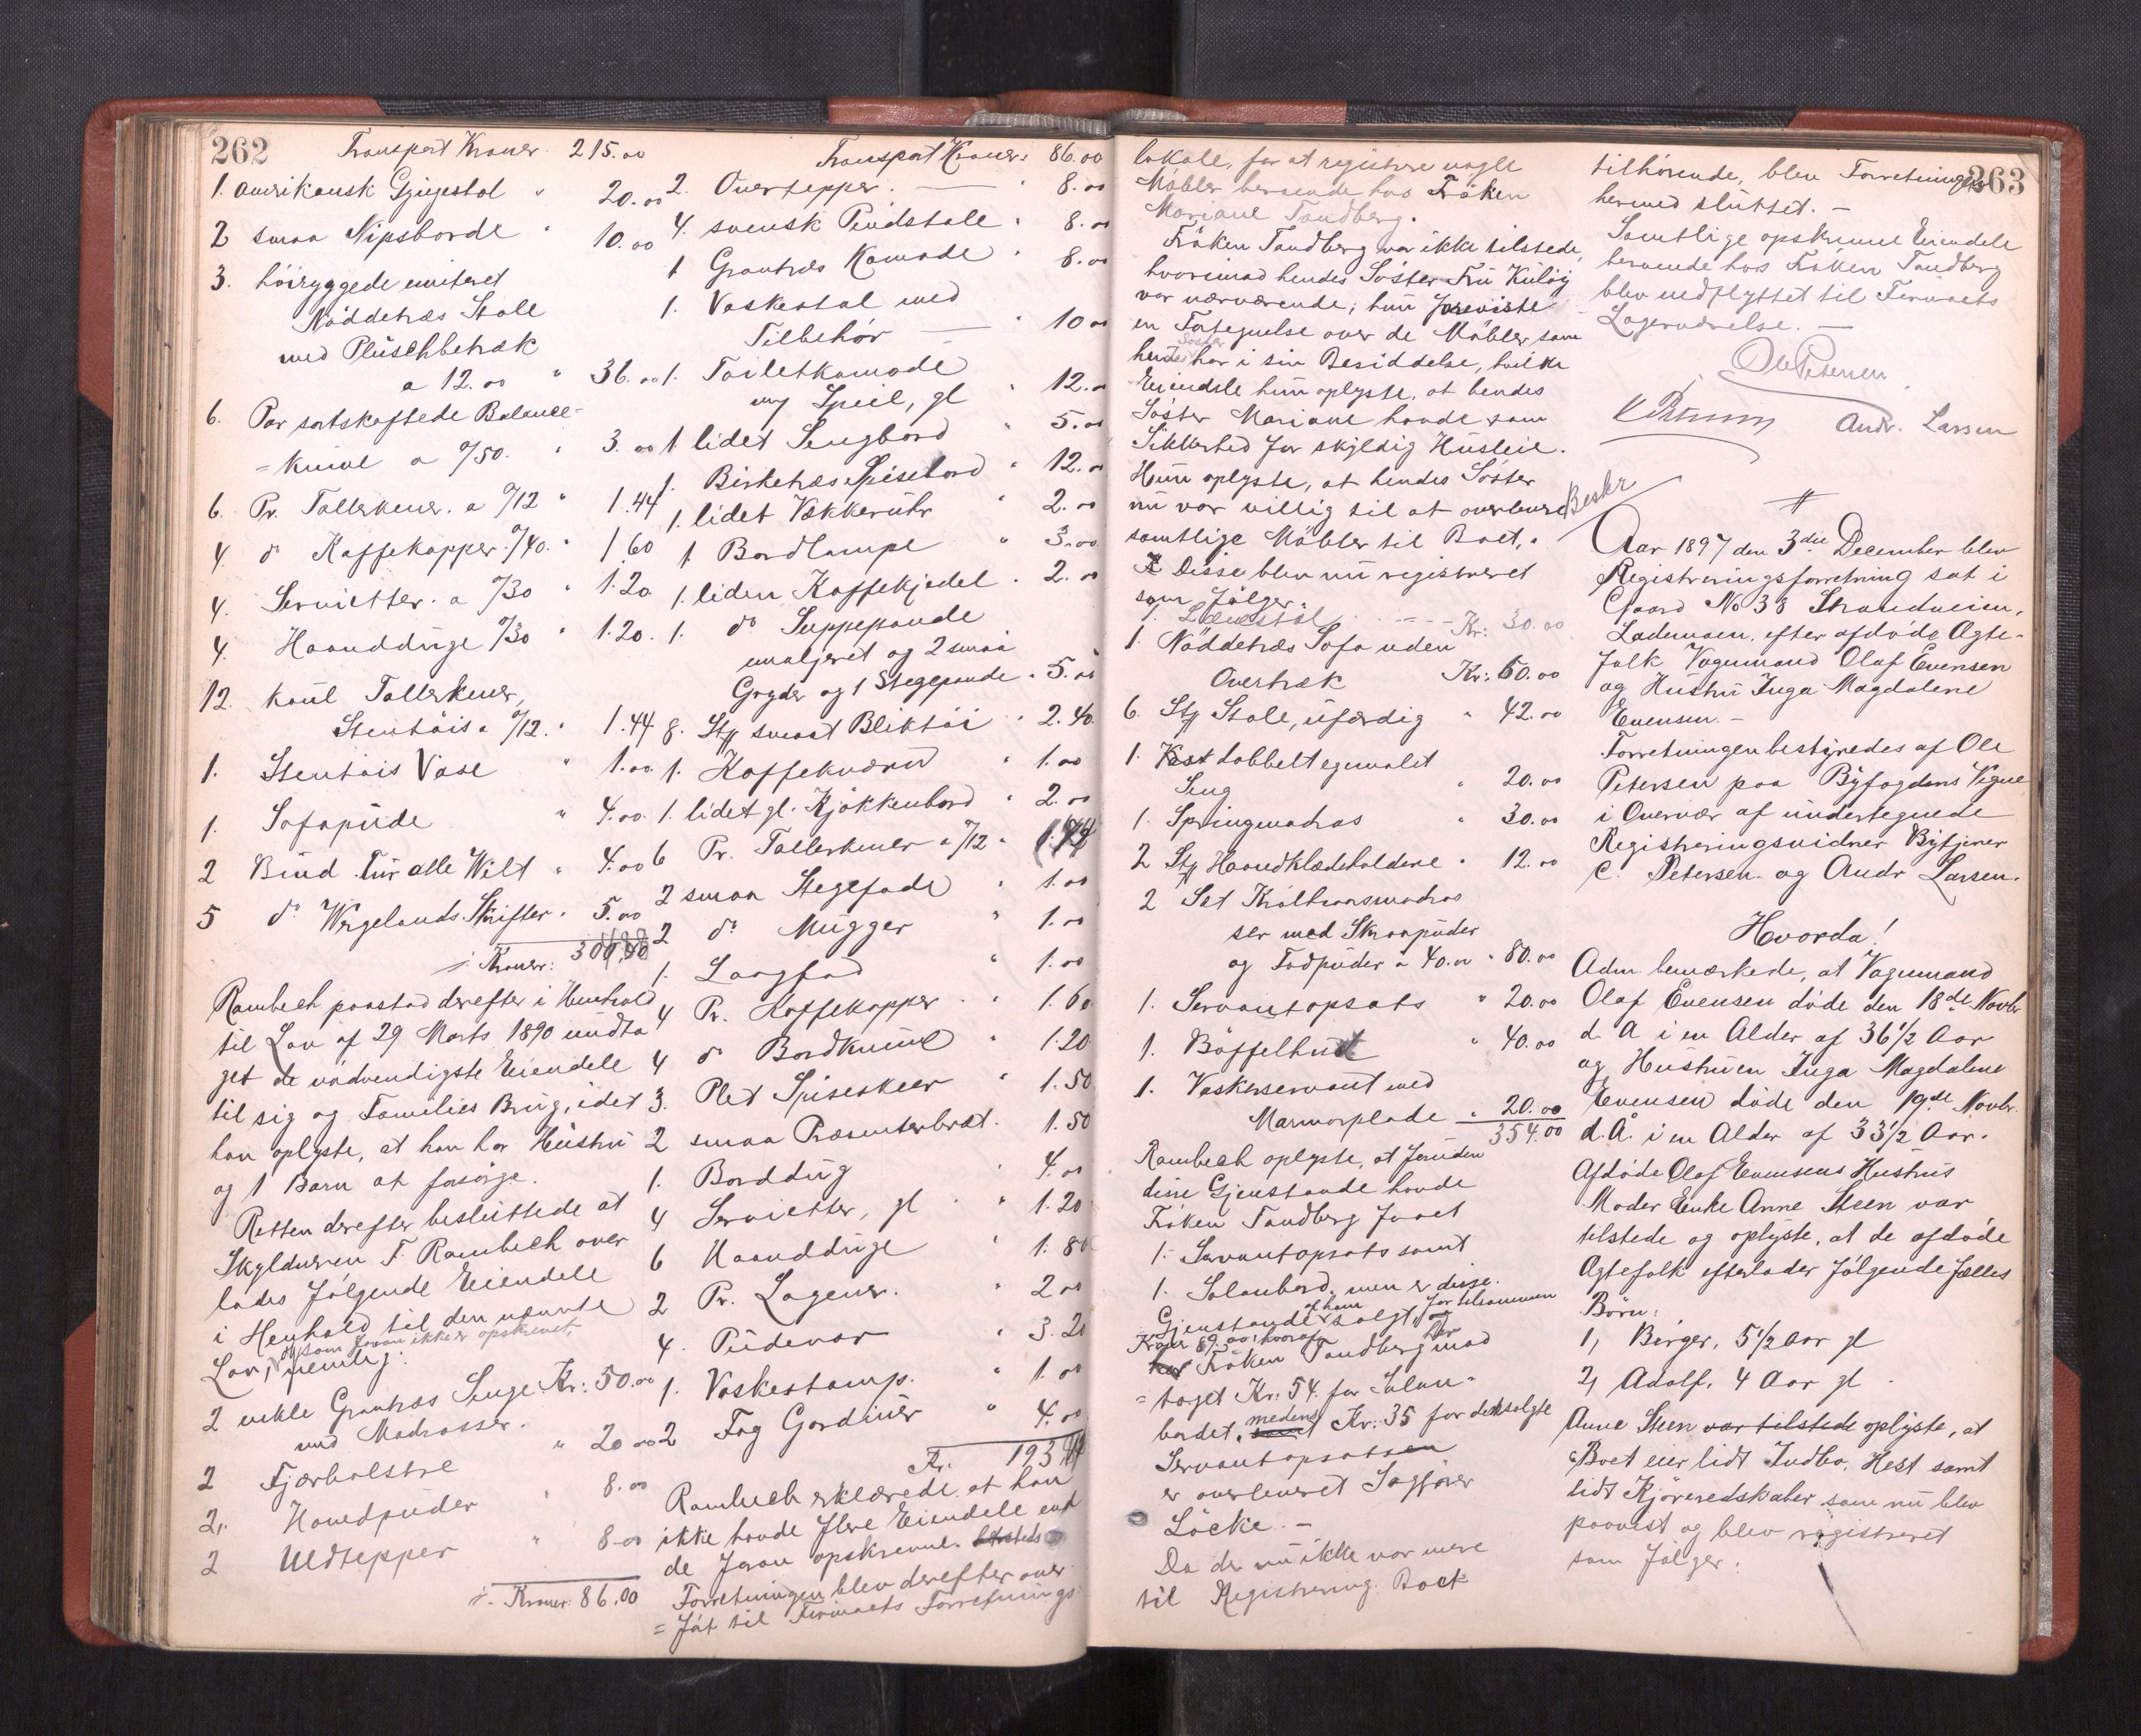 262
Transport Kroner 215.00
1. amerikansk Gyngestol " 20.00
2 smaa Nipsborde " 10.00
3. höiryggede imiteret
Nöddetræs Stole
med Plüschbetræk
a 12.00 " 36.00
6. Par sortskaftede Balance-
=knive a 0/50. " 3.00
6. Pr. Tallerkener. a 0/12 " 1.44
4. do Kaffekopper 0/40. " 1 60
4. Servietter. a 0/30 " 1.20
4. Haandduge 0/30 " 1.20.
12. Tallerkener,
Stentöis a 0/12. " 1.44
1. Stentöis Vase " 1.00
1. Sofapude " 4.00
2 Bind Für alle Welt " 4.00
5 do Wergelands Skrifter. " 5.00
Kroner:
Rambech paastod derefter i Henhold
til Lov af 29 Marts 1890 undta
get de nödvendigste Eiendele
til sig og Families Brug, idet
han oplyste, at han har Hustru
og 1 Barn at forsörge.
Retten derefter besluttede at
Skyldneren F. Rambech over
lades fölgende Eiendele
i Henhold til den nævnte
som foran ikke er opskrevet,
Lov, nemlig:
2 enkle Grantræs Senge Kr: 50.00
med Madrasser.
2 Fjærbolstre " 20 00
2. Hovedpuder " 8.00
2 Uldtepper " 8.00
Kroner: 86.00
Transport Kroner: 86.00
2. Overtepper. " 8.00
4. svensk Pindstole " 8.00
1 Grantræs Komode " 8.00
1. Vaskestol med
Tilbehör 10 00
1. Toiletkomode
og Speil, gl " 12.00
1 lidet Sengbord " 5.00
1. Birketræs Spisebord " 12.00
1. lidet Vækkeruhr " 2.00
1 Bordlampe " 3.00
1. liden Kaffekjedel " 2.00
1. do Suppepande
emaljeret og 2 smaa
Gryder og 1 Stegepande " 5.00
8. Stk smaat Bliktöi " 2.40
1. Kaffekværn " 1.00
1. lidet gl. Kjökkenbord " 2.00
6 Pr. Tallerkener a 0/12 "
2 smaa Stegefade " 1.00
2 do Mugger " 1.00
1. Langfad " 1.00
4 Pr. Kaffekopper " 1.60
4 do Bordknive " 1.20
3. Plet Spiseskeer " 1.50
2 smaa Præsenterbræt. 1.50
1. Borddug " 4.00
4 Servietter, gl " 1.20
6 Haandduge " 1.80
2 Pr. Lagener. " 2 00
4. Pudevar " 3.20
1. Vaskestamp. " 1 00
2 Fag Gardiner " 4.00
Kr. 193
Rambech erklærede, at han
ikke havde flere Eiendele end
de foran opskrevne.
Forretningen blev derefter over
=fört til Firmaets Forretnings
263
lokale, for at registrere nogle
Möbler beroende hos Fröken
Mariane Tandberg.
Fröken Tandberg var ikke tilstede,
hvorimod hendes Söster Fru Kulöy
var nærværende; hun foreviste
en Fortegnelse over de Möbler som
Söster
hendes har i sin Besiddelse, hvilke
Eiendele hun oplyste, at hendes
Söster Mariane havde som
Sikkerhed for skyldig Husleie.
Hun oplyste, at hendes Söster
nu var villig til at overlevere
samtlige Möbler til Boet.
Disse blev nu registreret
som fölger.
1. Lænestol - - - - Kr: 30.00
1. Nöddetræs Sofa uden
Overtræk Kr: 60.00
6. Stk Stole, ufærdig " 42.00
1. dobbelt egemalet
Seng " 20.00
1. Springmadras " 30.00
2 Stk Haandklædeholdere " 12.00
2 Set Krölhaarsmadras
ser med Skraapuder
og Fodpuder a 40.00 " 80.00
1. Servantopsats " 20.00
1. Böffelhud " 40.00
1. Vaskeservant med
Marmorplade " 20.00
354.00
Rambech oplyste, at foruden
disse Gjenstande havde
Fröken Tandberg faaet
1. Servantopsats samt
1. Salonbord, men er disse
Gjenstande af ham solgt, for tilsammen
Kroner 89.00, hvoraf
Fröken Tandberg har mod
=taget Kr: 54. for Salon-
bordet, medens Kr: 35 for den solgte
Servantopsats
er overleveret Sagförer
Löcke. -
Da der nu ikke var mere
til Registrering Boet
tilhörende, blev Forretningen
hermed sluttet. -
Samtlige opskrevne Eiendele
beroende hos Fröken Tandberg
blev nedflyttet til Firmaets
Lagerværelse. -
Ole Petersen
C Petersen Andr. Larsen
Beskr
Aar 1897 den 3die December blev
Registreringsforretning sat i
Gaard No 38 Strandveien,
Lademoen, efter afdöde Ægte-
folk Vognmand Olaf Evensen
og Hustru Inga Magdalene
Evensen. -
Forretningen bestyredes af Ole
Petersen paa Byfogdens Vegne
i Overvær af undertegnede
Registreringsvidner Bytjener
C. Petersen og Andr Larsen.
Hvorda!
Adm. bemærkede, at Vognmand
Olaf Evensen döde den 18de Novbr
d. A i en Alder af 36 1/2 Aar
og Hustruen Inga Magdalene
Evensen döde den 19de Novbr.
d. A. i en Alder af 33 1/2 Aar.
Afdöde Olaf Evensens Hustrus
Moder Enke Anne Steen var
tilstede og oplyste, at de afdöde
Ægtefolk efterlader fölgende fælles
Börn:
1, Birger, 5 1/2 Aar gl
2, Adolf, 4 Aar gl.
Anne Steen var tilstede oplyste, at
Boet eier lidt Indbo, Hest samt
lidt Kjöreredskaber som nu blev
paavist og blev registreret
som fölger: